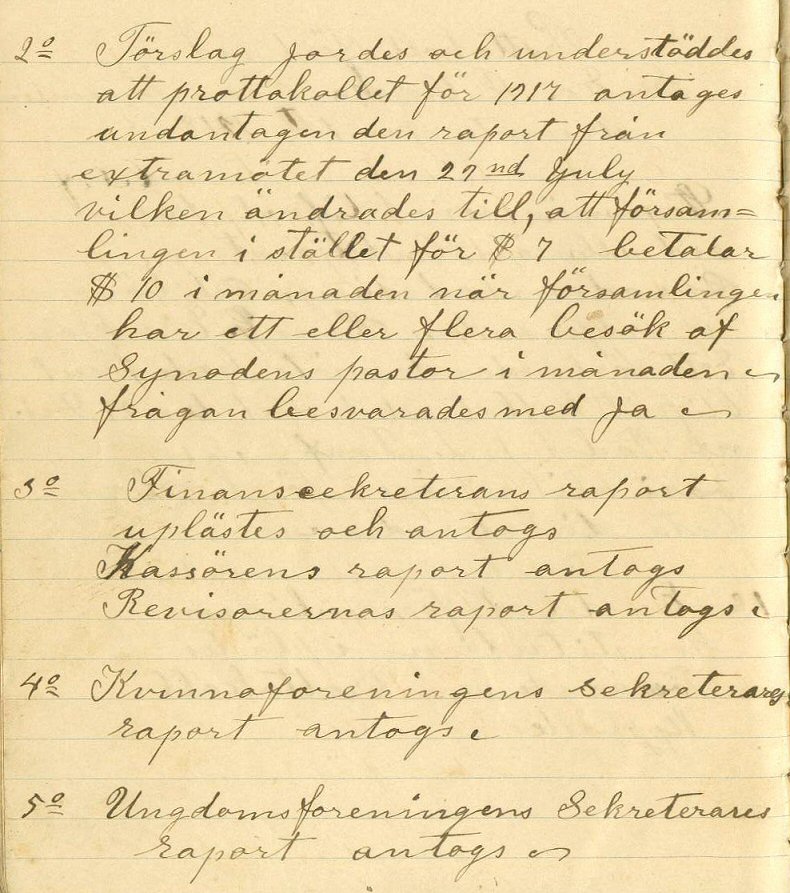 2º Förslag jordes och understöddes
att prottokollet för 1917 antages
undantagen den raport från
extramötet den 22nd July
vilken ändrades till, att försam=
lingen i stället för $ 7 betalar
$ 10 i månaden när församlingen
har ett eller flera besök af
Synodens pastor i månaden
frågan besvarades med ja
3º Finanssekreterans raport
uplästes och antogs
Kassörens raport antogs
Revisorernas raport antogs
4º Kvinnaforeningens sekreterares
raport antogs
5º Ungdomsforeningens Sekreterares
raport antogs